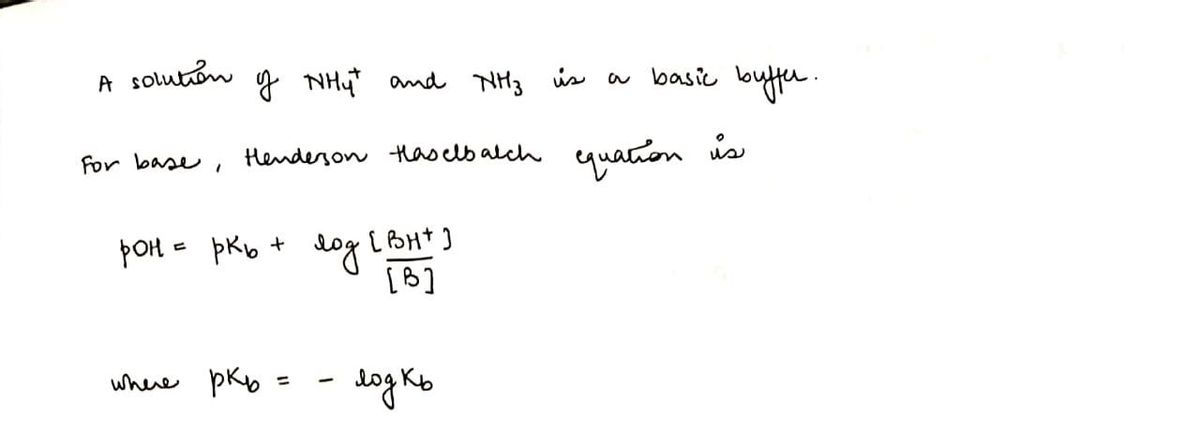 A solution of NH₄⁺ and NH₃ is a basic buffer.
For base, Henderson Haselbalch equation is
pOH = pKb + log [BH⁺]
[B]
where pKb = - log Kb